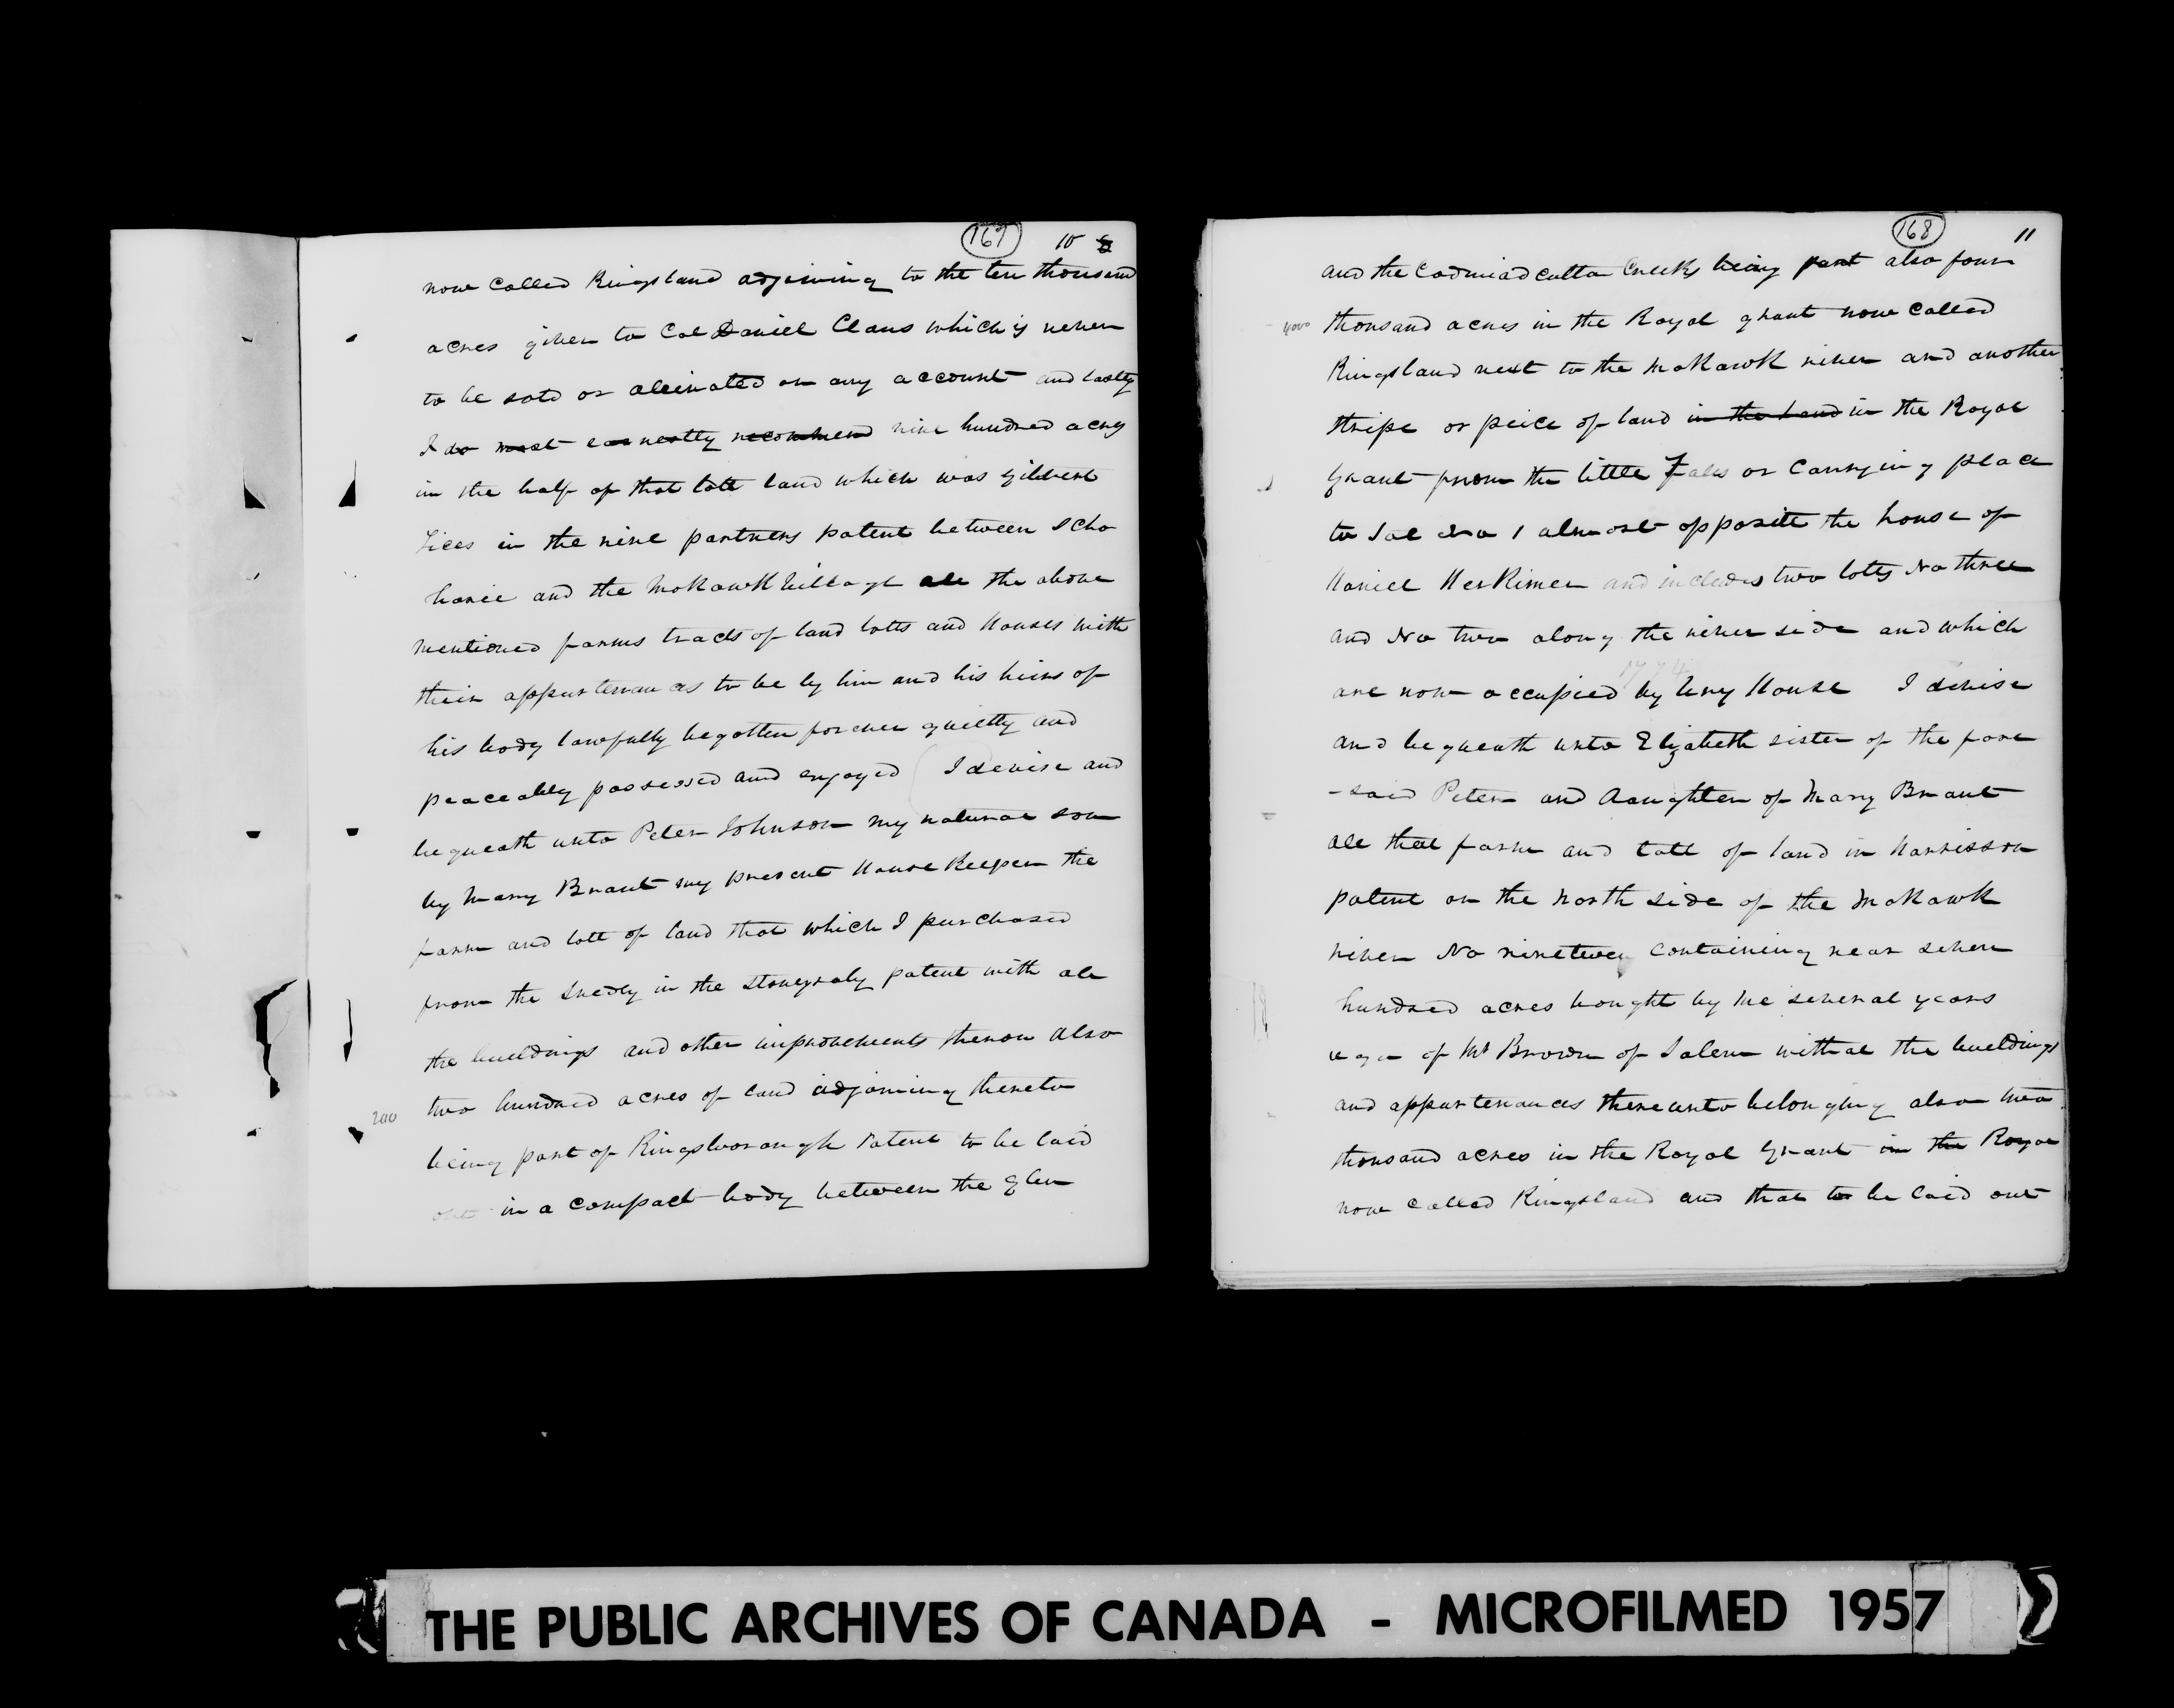 167 10
now called Kingsland adjoining to the ten thousand
acres given to Col Daniell Claus which is never
to be sold or alleinated on any account and lastly
I do most earnestly recommend nine hundred acres
in the half of that lott land which was Gilbert
Tices in the nine partners patent between Scho
harie and the Mohawk Village all the above
mentioned farms tracts of land lotts and Houses with
their appurtenances to be by him and his heirs of
his body lawfully begotten forever quietly and
peaceably possessed and enjoyed I devise and
bequeath unto Peter Johnson my natural son
by Mary Brant my present House Keeper the
farm and lott of land that which I purchased
from the Snedly in the Stoneyraby patent with all
the buildings and other improvements thereon also
200 two hundred acres of land adjoining thereto
being part of Kingsborough Patent to be laid
out in a compact body between the Glen
168 11
and the Cadmiadcutta Creeks being part also four
4000 thousand acres in the Royal grant now called
Kingsland next to the Mohawk river and another
stripe or peice of land in the Land in the Royal
Grant from the little Falls or Carrying place
to Lot No 1 almost opposite the house of
Haniel HerKimer and includes two lotts No three
and No two along the river side and which
1774
are now occupied by Uny House I devise
and bequeath unto Elizabeth sister of the fore
- said Peter and daughter of Mary Brant
all that farm and lott of land in Harrisson
patent on the North side of the Mohawk
river No nineteen containing near seven
hundred acres bought by me several years
ago of Mr Brown of Salem with all the buildings
and appurtenances thereunto belonging also two
thousand acres in the Royal Grant in the Royal
now called Kingsland and that to be laid out
THE PUBLIC ARCHIVES OF CANADA - MICROFILMED 1957